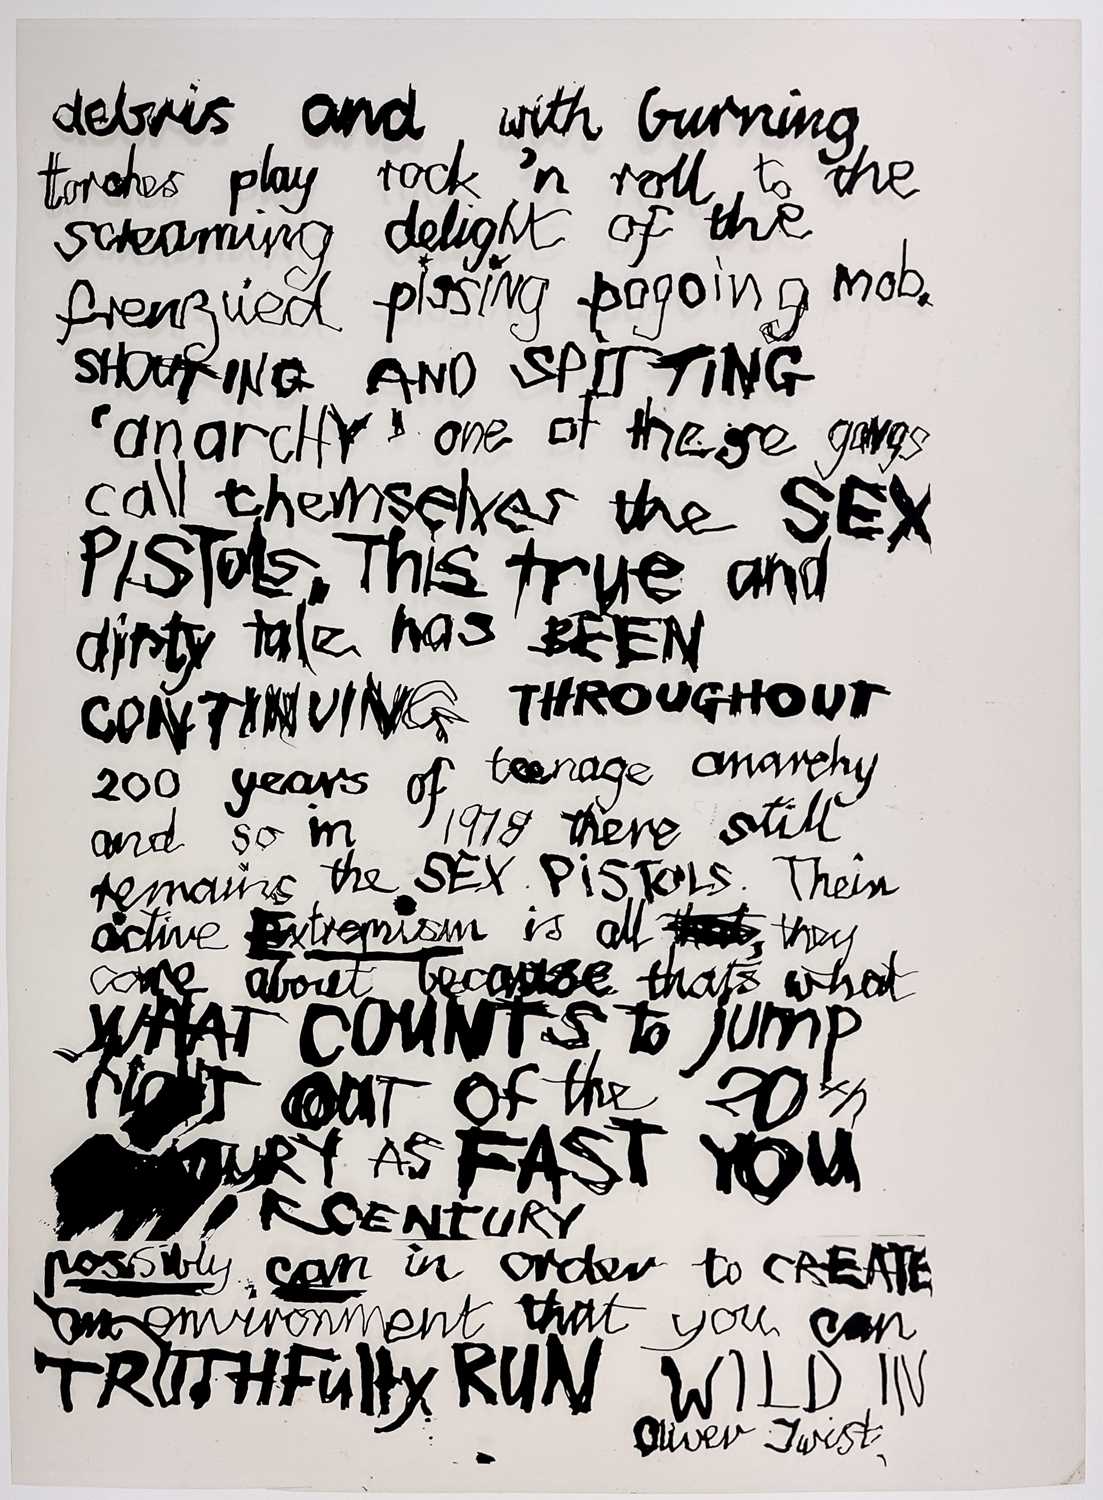 debris and with burning
torches play rock 'n roll to the
screaming delight of the
frenzied pissing pogoing mob.
SHOUTING AND SPITTING
'anarcHY' one of these gangs
call themselves the SEX
PISTols. This true and
dirty tale has BEEN
CONTINUING THROUGHOUT
200 years of teenage anarchy
and so in 1978 there still
remains the SEX PiSTOLS. Their
active Extremism is all they
care about because thats what
WHAT COUNTS to jump
right OUT OF the 20th
TURY AS FAST YOU
CENTURY
possibly can in order to CREATE
an environment that you can
TRUTHFully RUN WILD IN
Oliver Twist.